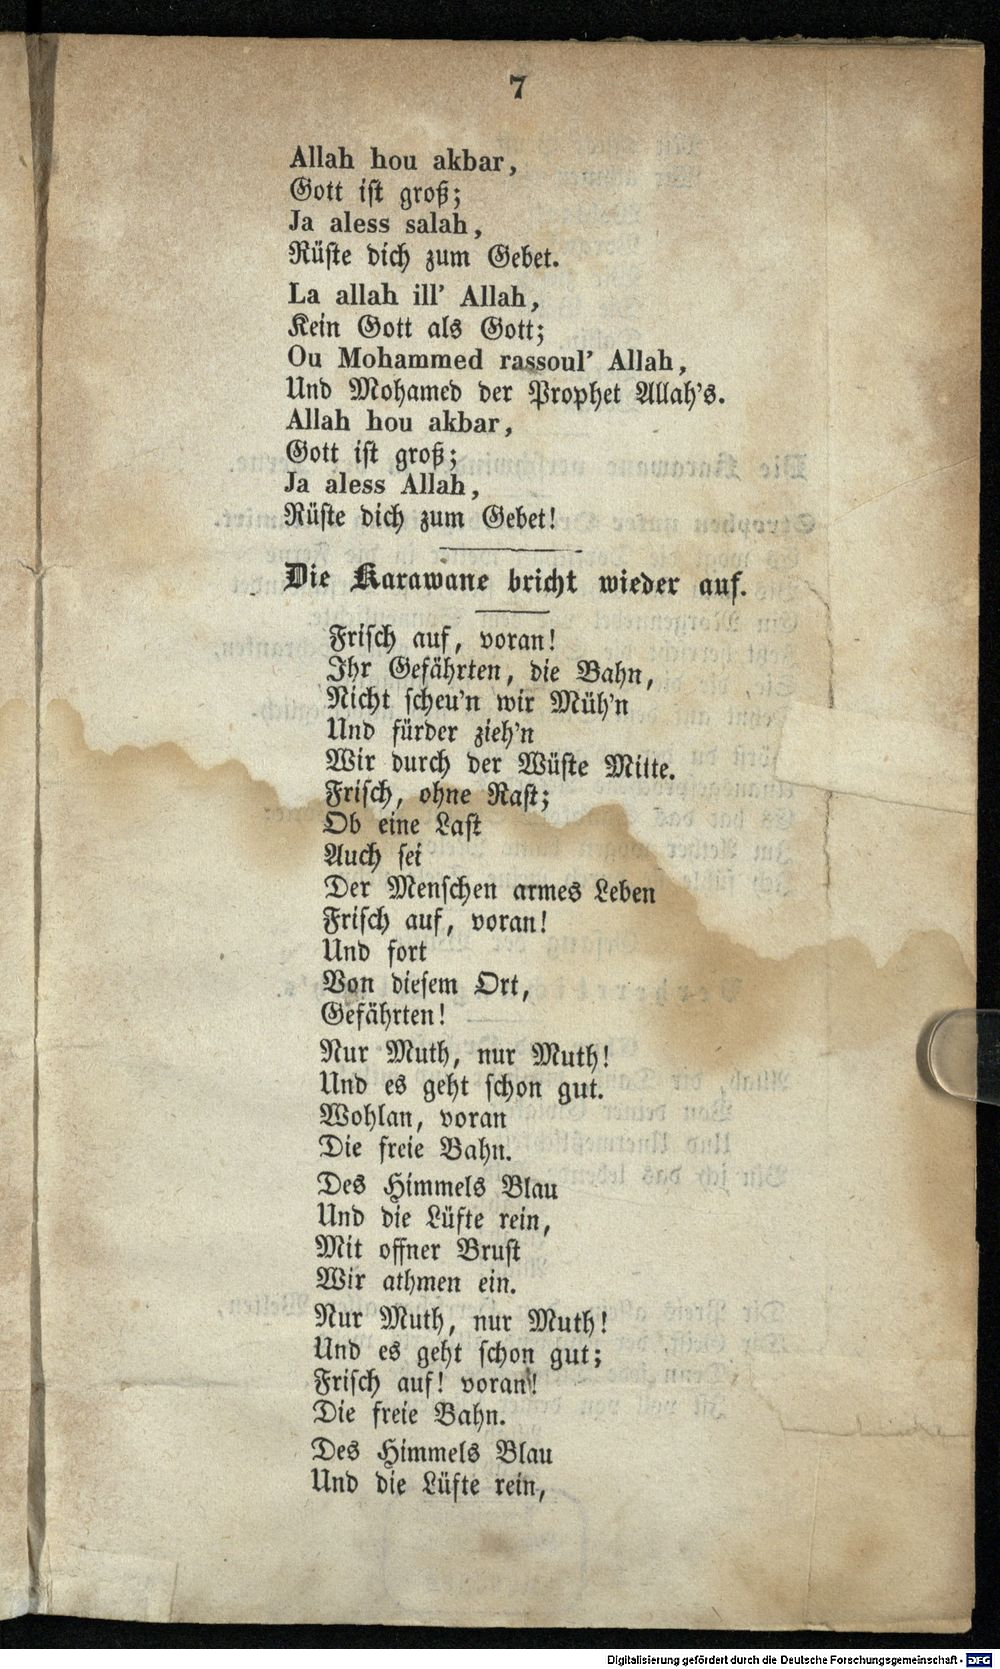 7
Allah hou akbar,
Gott ist groß;
Ja aless salah,
Rüste dich zum Gebet.
La allah ill' Allah,
Kein Gott als Gott;
Ou Mohammed rassoul' Allah,
Und Mohamed der Prophet Allah's.
Allah hou akbar,
Gott ist groß;
Ja aless Allah,
Rüste dich zum Gebet!
Die Karawane bricht wieder auf.
Frisch auf, voran!
Ihr Gefährten, die Bahn,
Nicht scheu'n wir Müh'n
Und fürder zieh'n
Wir durch der Wüste Mitte.
Frisch, ohne Rast;
Ob eine Last
Auch sei
Der Menschen armes Leben
Frisch auf, voran!
Und fort
Von diesem Ort,
Gefährten!
Nur Muth, nur Muth!
Und es geht schon gut.
Wohlan, voran
Die freie Bahn.
Des Himmels Blau
Und die Lüfte rein,
Mit offner Brust
Wir athmen ein.
Nur Muth, nur Muth!
Und es geht schon gut;
Frisch auf! voran!
Die freie Bahn.
Des Himmels Blau
Und die Lüfte rein,
Digitalisierung gefördert durch die Deutsche Forschungsgemeinschaft - DFG